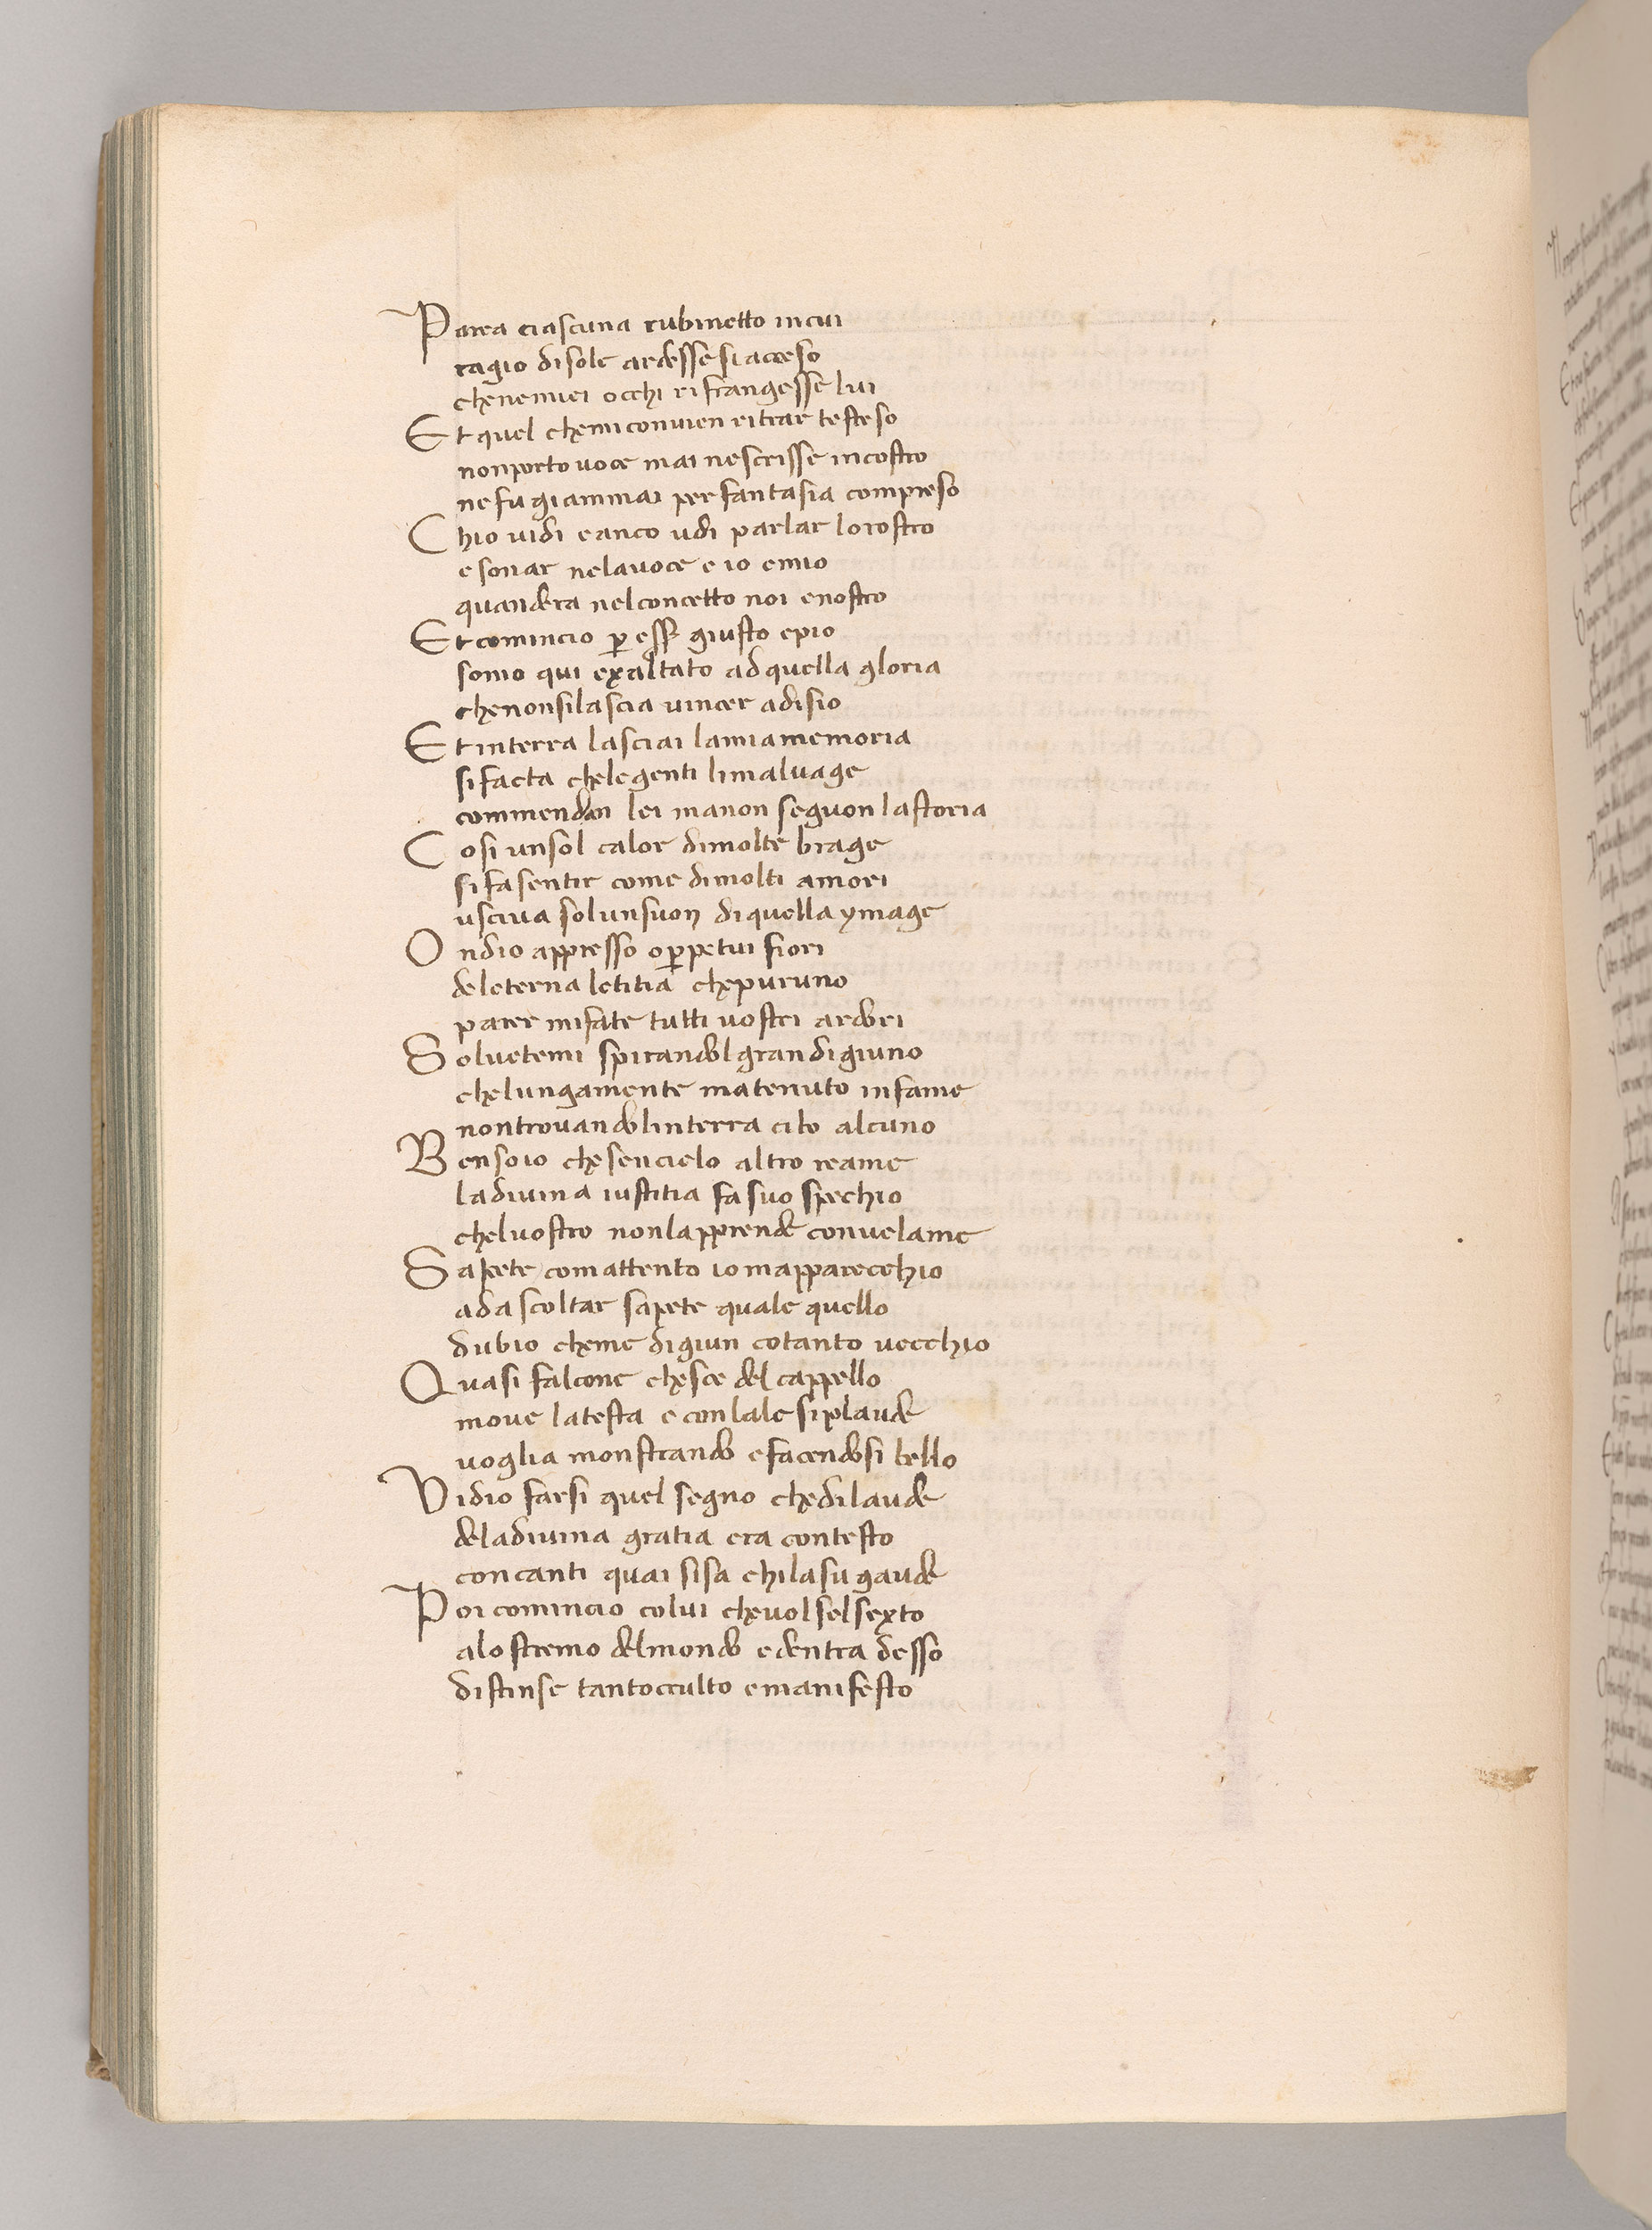 Parea ciascuna rubinetto incui
ragio disole ardesse si acceso
chenemiei occhi rifrangesse lui
Et quel chemiconvien ritrar testeso
nonporto voce mai nescrisse incostro
nefu giammai per fantasia compreso
Chio vidi e anco udi parlar lorostro
e sonar nelavoce e io emio
quandera nelconcetto noi enostro
Et comincio ꝑ esẜ giusto epio
sonio qui exaltato adquella gloria
chenonsilascia vincer adisio
Et interra lasciai lamiamemoria
sifacta chelegenti limalvage
commendan lei manon seguon lastoria
Cosi unsol calor dimolte brage
sifasentir come dimolti amori
usciva solunsuon diquella ymage
Ondio appresso oꝑpetui fiori
deleterna letitia chepuruno
parer mifate tutti vostri ardori
Solvetemi spirandol gran digiuno
chelungamente matenuto infame
nontrovandolinterra cibo alcuno
Bensoio chesencielo altro reame
ladivina iustitia fa suo spechio
chelvostro nonlapprende convelame
Sapete comattento io mapparecchio
adascoltar sapete quale quello
dubio cheme digiun cotanto vecchio
Quasi falcone chesce del cappello
move latesta e conlale siplaude
voglia monstrando efacendosi bello
Vidio farsi quel segno chedilaude
deladivina gratia era contesto
concanti quai sisa chilasu gaude
Poi comincio colui chevolselsexto
alostremo delmondo edentra desso
distinse tantocculto emanifesto